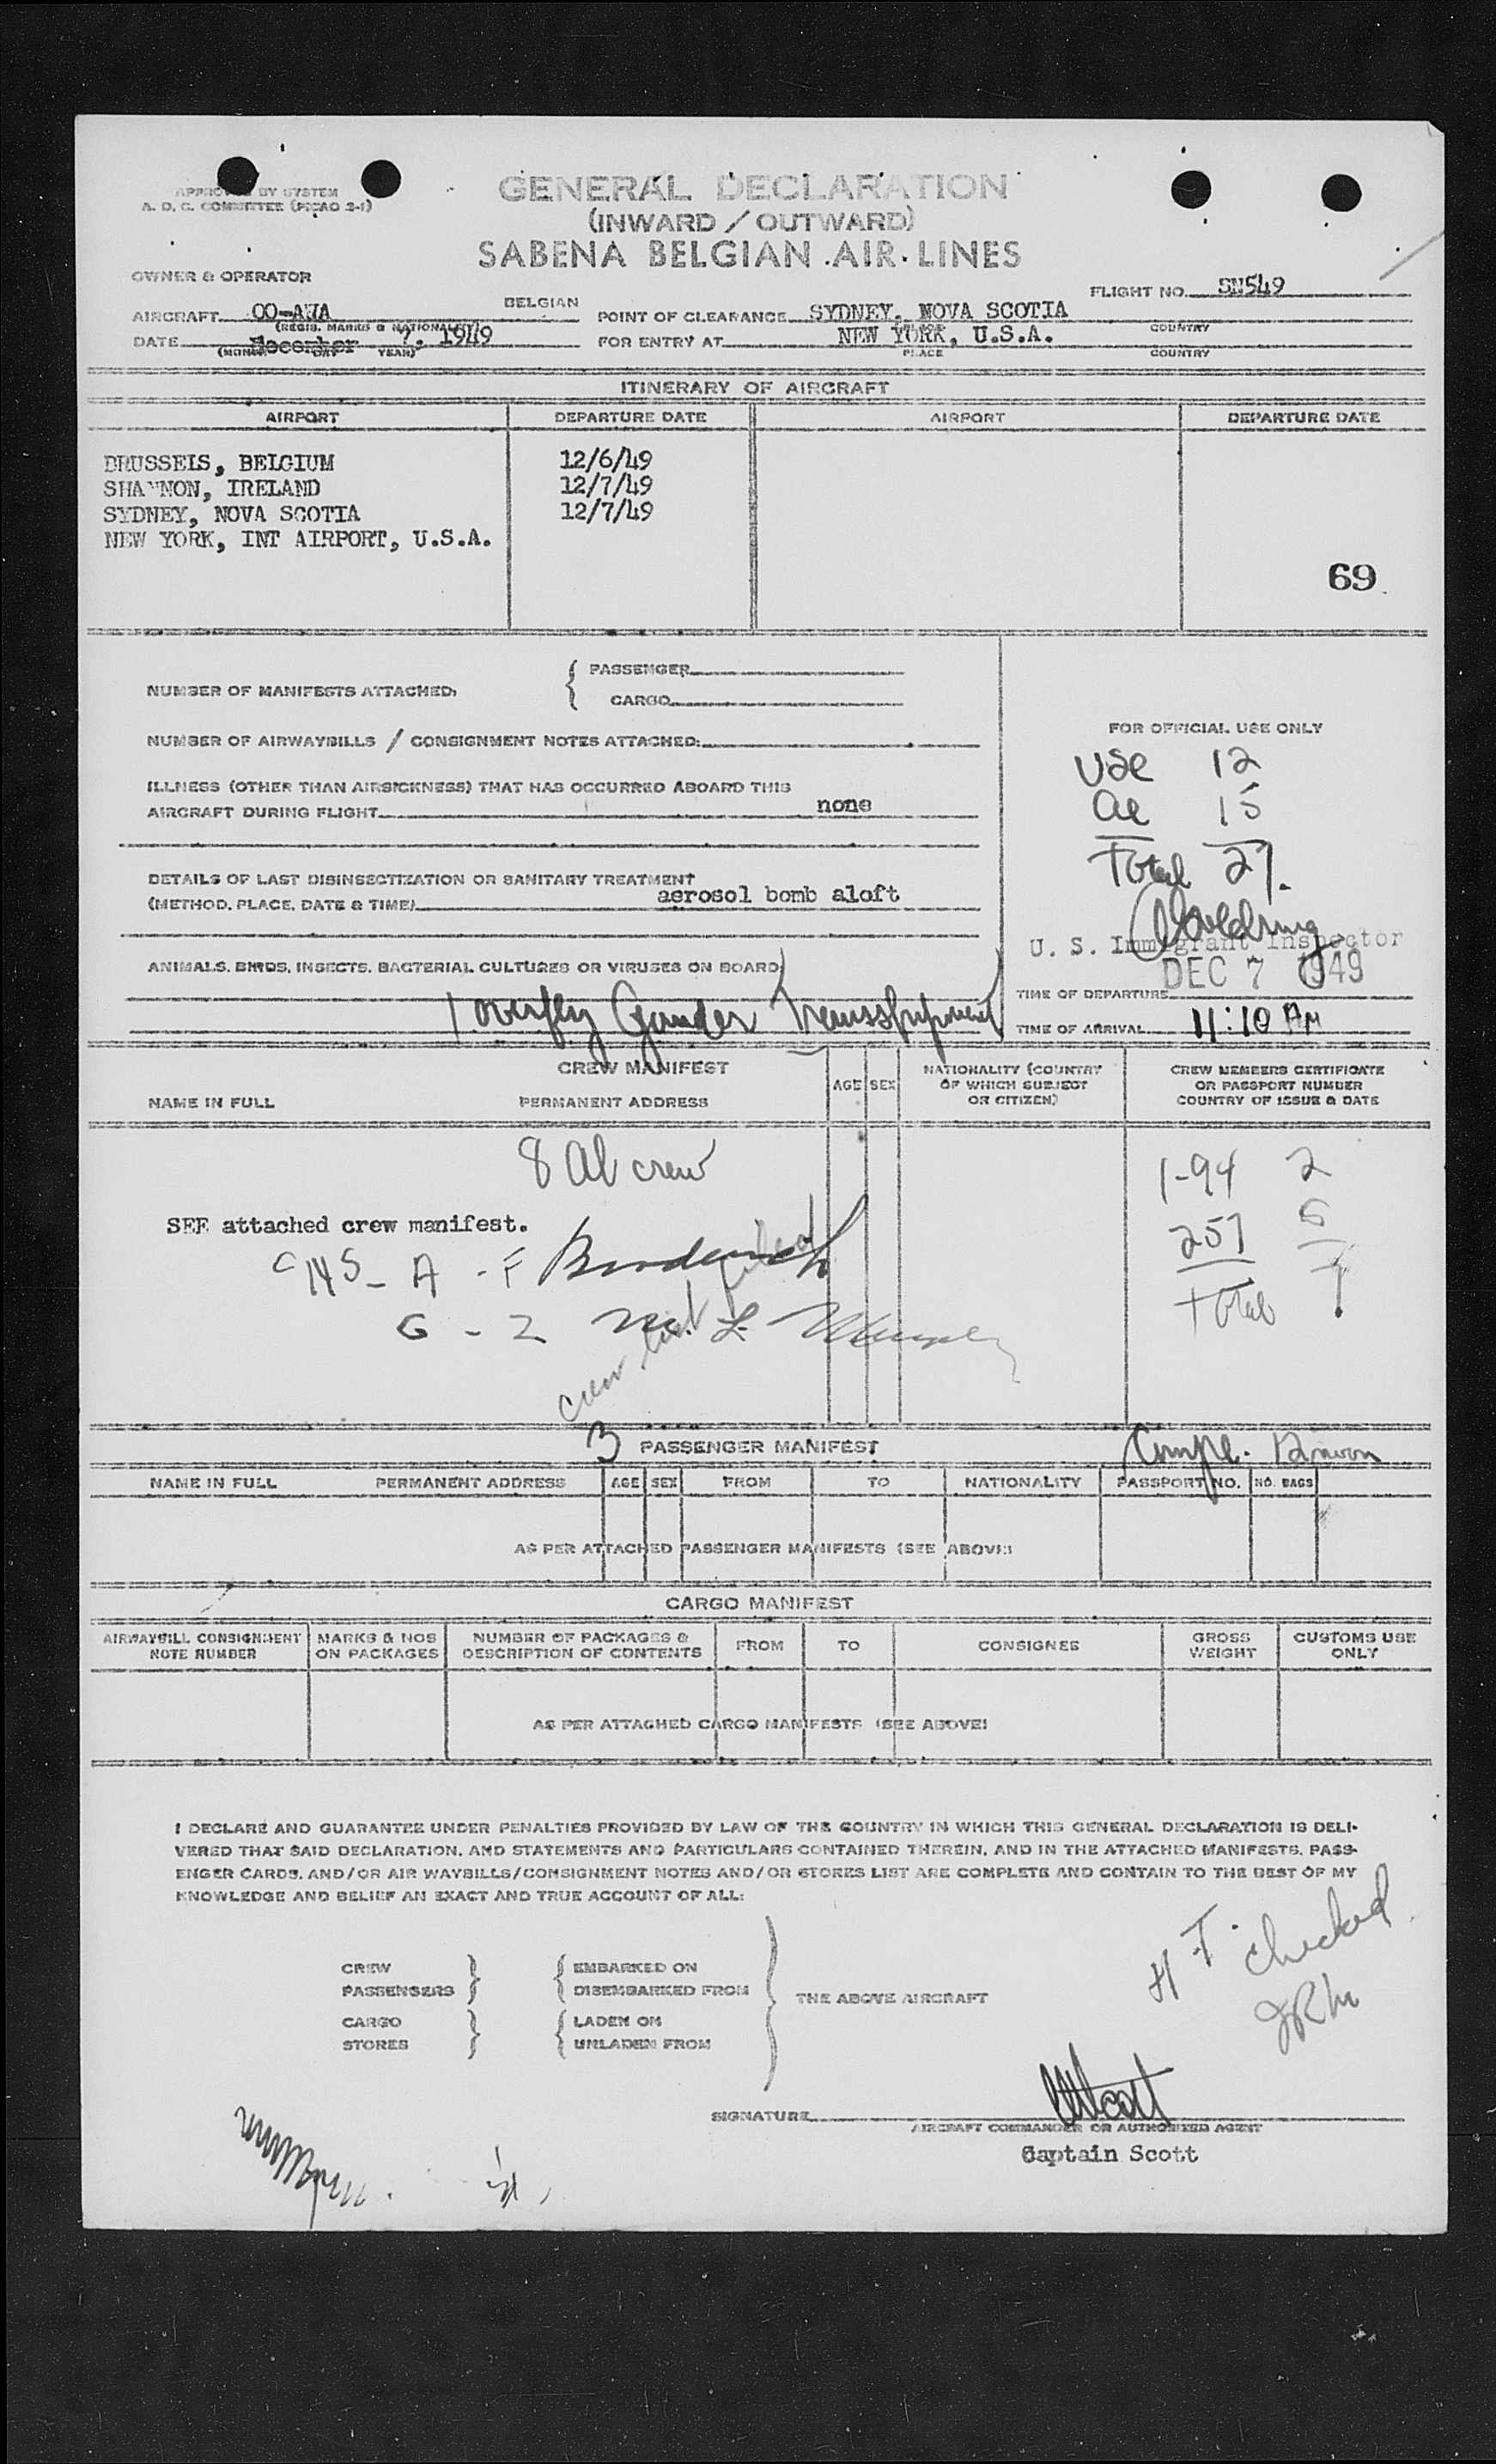 APPROVED BY SYSTEM
A. O. C. COMMITTEE (PICAO 2-1)
GENERAL DECLARATION
(INWARD / OUTWARD)
SABENA BELGIAN AIR LINES
OWNER & OPERATOR
FLIGHT NO. SN549
AIRCRAFT OO-AWA BELGIAN
(REGIS. MARKS & NATIONALITY)
POINT OF CLEARANCE SYDNEY, NOVA SCOTIA
COUNTRY
DATE December 7, 1949
(MONTH DAY YEAR)
FOR ENTRY AT NEW YORK, U.S.A.
PLACE COUNTRY
ITINERARY OF AIRCRAFT
AIRPORT DEPARTURE DATE AIRPORT DEPARTURE DATE
BRUSSELS, BELGIUM 12/6/49
SHANNON, IRELAND 12/7/49
SYDNEY, NOVA SCOTIA 12/7/49
NEW YORK, INT AIRPORT, U.S.A.
69
NUMBER OF MANIFESTS ATTACHED:
PASSENGER
CARGO
NUMBER OF AIRWAYBILLS / CONSIGNMENT NOTES ATTACHED:
ILLNESS (OTHER THAN AIRSICKNESS) THAT HAS OCCURRED ABOARD THIS
AIRCRAFT DURING FLIGHT none
DETAILS OF LAST DISINSECTIZATION OR SANITARY TREATMENT
(METHOD, PLACE, DATE & TIME) aerosol bomb aloft
ANIMALS, BIRDS, INSECTS, BACTERIAL CULTURES OR VIRUSES ON BOARD
1 overfly Gander Transshipment
FOR OFFICIAL USE ONLY
USC 12
al 15
Total 27.
U. S. Immigrant Inspector
DEC 7 1949
TIME OF DEPARTURE
TIME OF ARRIVAL 11:10 AM
CREW MANIFEST
NAME IN FULL PERMANENT ADDRESS AGE SEX NATIONALITY (COUNTRY OF WHICH SUBJECT OR CITIZEN) CREW MEMBERS CERTIFICATE OR PASSPORT NUMBER COUNTRY OF ISSUE & DATE
8 Al crew
SEE attached crew manifest.
I-94 2
257 5
Total 7
G - 2
crew list filed
3 PASSENGER MANIFEST
NAME IN FULL PERMANENT ADDRESS AGE SEX FROM TO NATIONALITY PASSPORT NO. NO. BAGS
AS PER ATTACHED PASSENGER MANIFESTS (SEE ABOVE)
CARGO MANIFEST
AIRWAYBILL CONSIGNMENT NOTE NUMBER MARKS & NOS ON PACKAGES NUMBER OF PACKAGES & DESCRIPTION OF CONTENTS FROM TO CONSIGNEE GROSS WEIGHT CUSTOMS USE ONLY
AS PER ATTACHED CARGO MANIFESTS (SEE ABOVE)
I DECLARE AND GUARANTEE UNDER PENALTIES PROVIDED BY LAW OF THE COUNTRY IN WHICH THIS GENERAL DECLARATION IS DELI-
VERED THAT SAID DECLARATION, AND STATEMENTS AND PARTICULARS CONTAINED THEREIN, AND IN THE ATTACHED MANIFESTS, PASS-
ENGER CARDS, AND/OR AIR WAYBILLS/CONSIGNMENT NOTES AND/OR STORES LIST ARE COMPLETE AND CONTAIN TO THE BEST OF MY
KNOWLEDGE AND BELIEF AN EXACT AND TRUE ACCOUNT OF ALL:
CREW
PASSENGERS
CARGO
STORES
EMBARKED ON
DISEMBARKED FROM
LADEN ON
UNLADEN FROM
THE ABOVE AIRCRAFT
H T. checked
JRM
SIGNATURE Scott
AIRCRAFT COMMANDER OR AUTHORIZED AGENT
Captain Scott